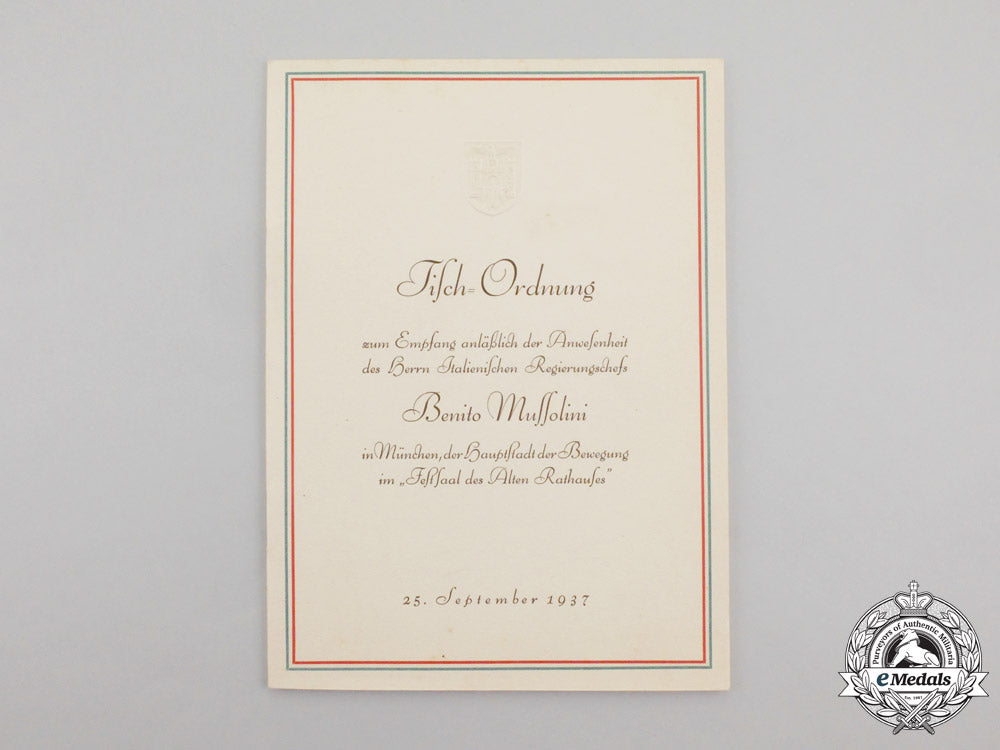 Tisch=Ordnung
zum Empfang anläßlich der Anwesenheit
des Herrn Italienischen Regierungschefs
Benito Mussolini
in München, der Hauptstadt der Bewegung
im „Festsaal des Alten Rathauses"
25. September 1937
Purveyors of Authentic Militaria
eMedals
Est. 1987